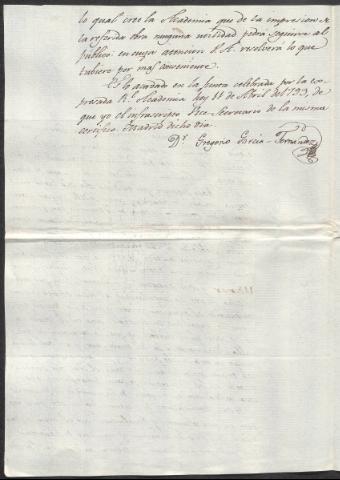 lo qual cree la Academia que de la impresion de
la referida obra ninguna utilidad podra seguirse al
público: en cuya atencion V. A. resolverá lo que
tubiere por mas conveniente.
Así lo acordado en la Junta celebrada por la ex-
presada Rl. Academia hoy 11 de Abril de 1793, de
que yo el infraescrito Vice-Secretario de la misma
certifico. Madrid dicho dia.
Dr. Gregorio Garcia-Fernandez